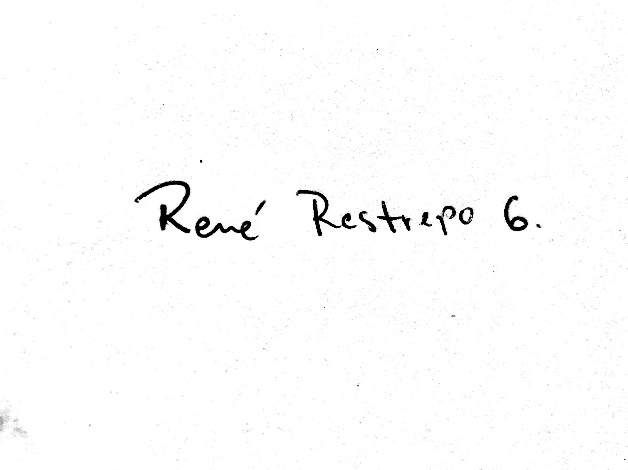 René Restrepo G.